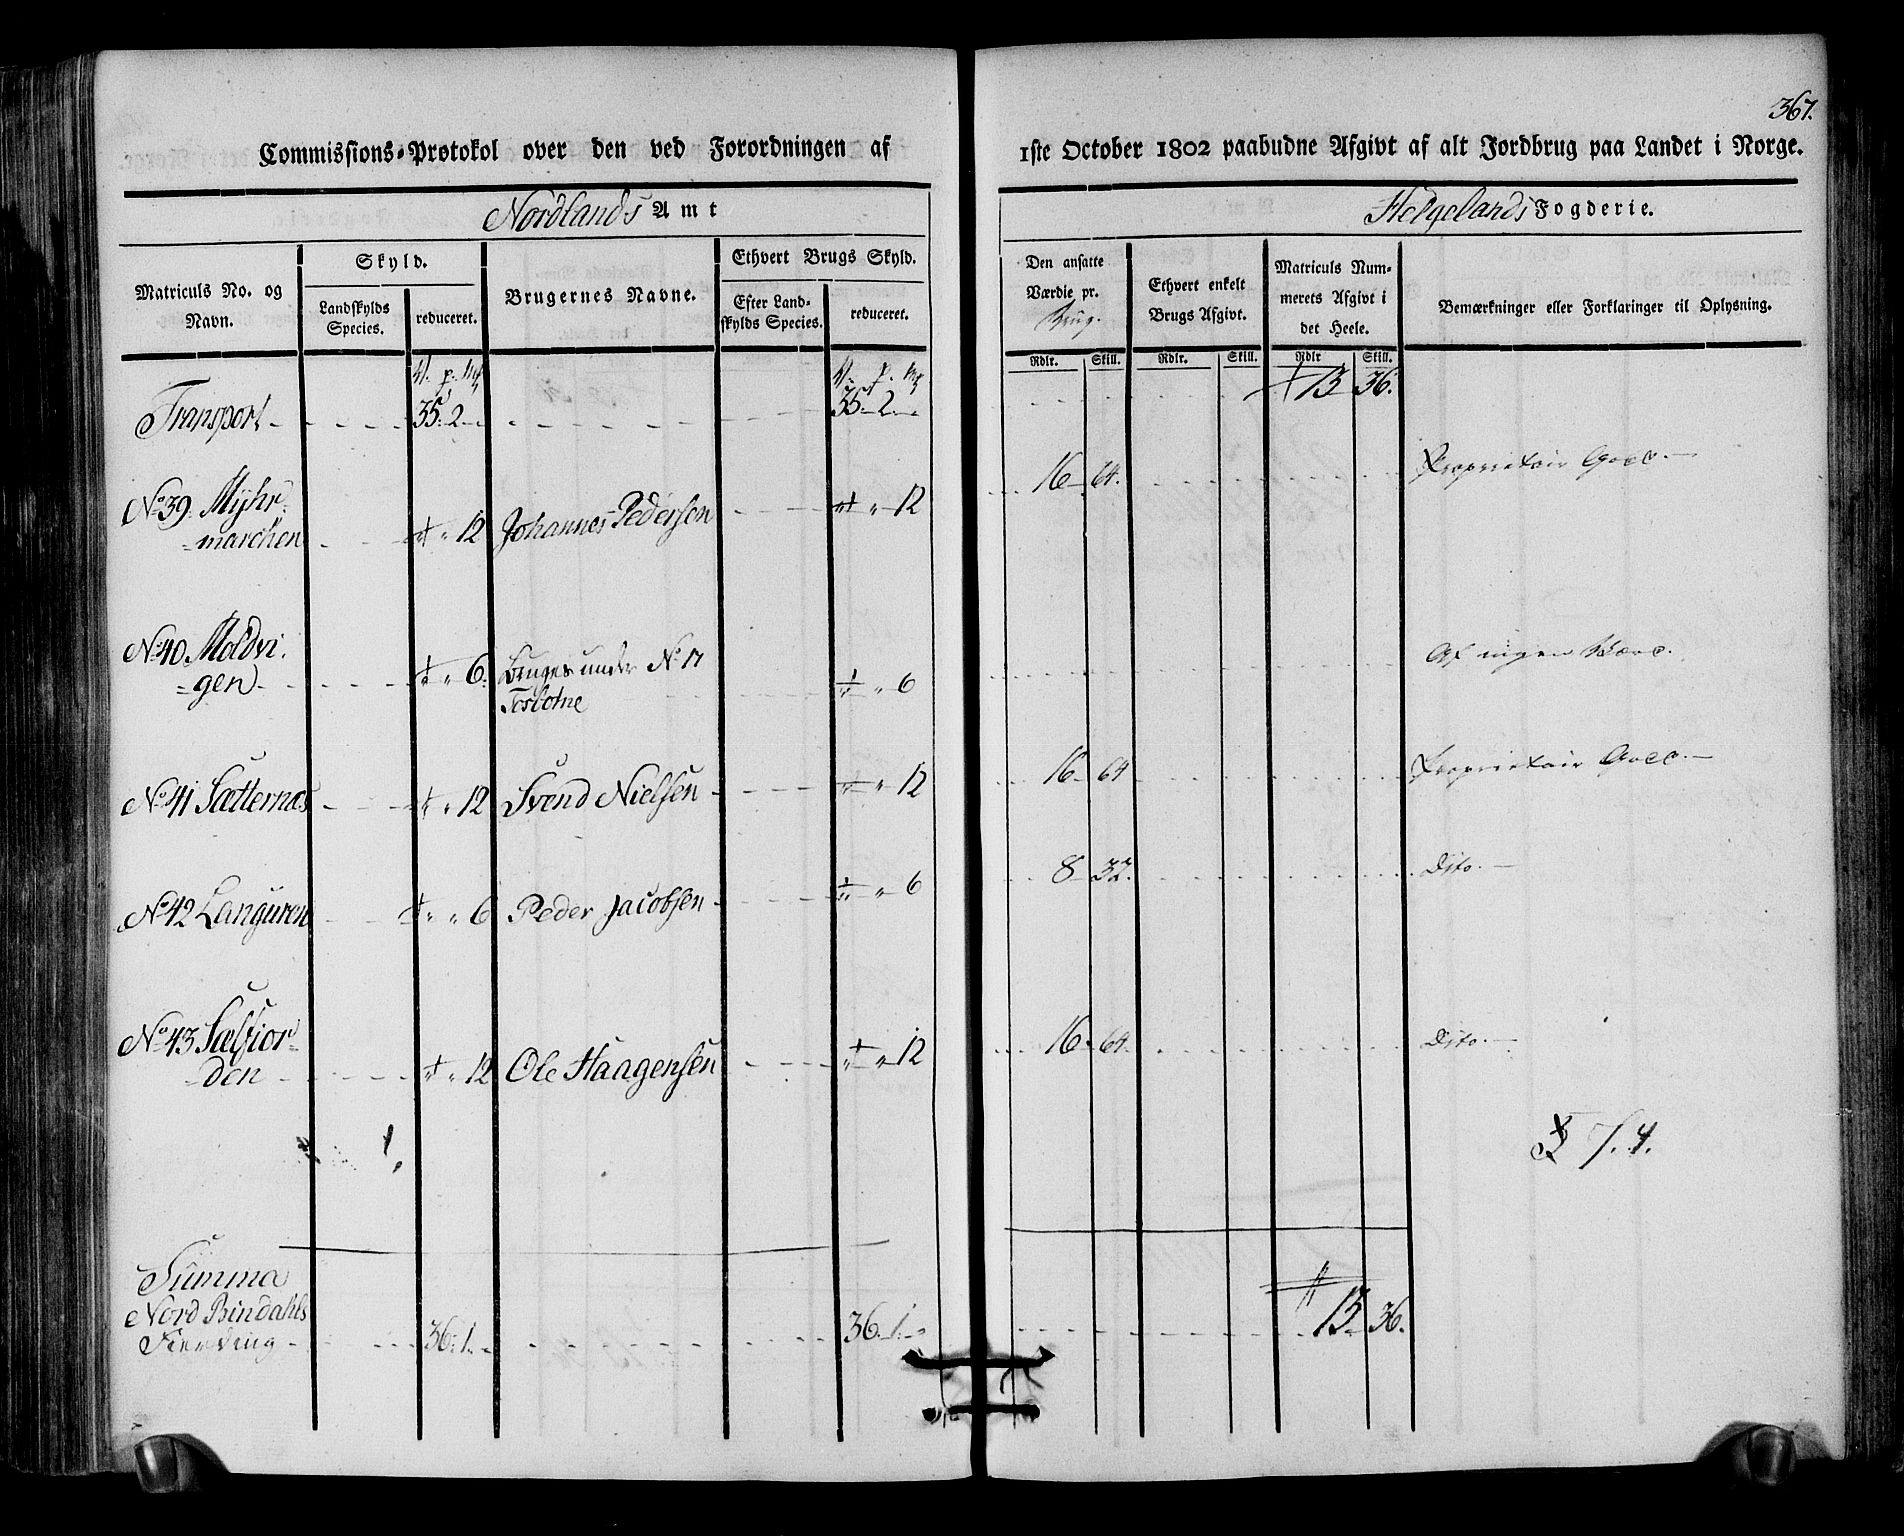 367.
Commissions-Protokol over den ved Forordningen af 1ste October 1802 paabudne Afgivt af alt Jordbrug paa Landet i Norge.
Nordlands Amt
Helgelands Fogderie.
Matriculs No. og Navn.
Skyld.
Landskylds Species.
reduceret.
Brugernes Navne.
Ethvert Brugs Skyld.
Efter Landskylds Species.
reduceret.
Den ansatte Værdie pr. Brug.
Ethvert enkelt Brugs Afgivt.
Matriculs Nummerets Afgivt i det Heele.
Bemærkninger eller Forklaringer til Oplysning.
Rdlr. Skill. Rdlr. Skill. Rdlr Skill.
Transport 35. 2 35. 2 13 36.
No 39 Myhr-
marchen 12 Johannes Pedersen 12 16 64. Proprietair Gods.
No 40 Moldvi-
gen 6. Bruges under No 17 6 Af ingen Værd.
Tosbotne
No 41 Sætternæs 12 Svend Nielsen 12 16 64 Proprietair Gods.
No 42 Languren 6 Peder Jacobsen 6 8 32. Dito.
No 43 Sælfior-
den 12 Ole Haagensen 12 16 64. Dito.
7. 4.
Summa
Nord Bindahls
Fierding 36. 1. 36. 1. 13 36.